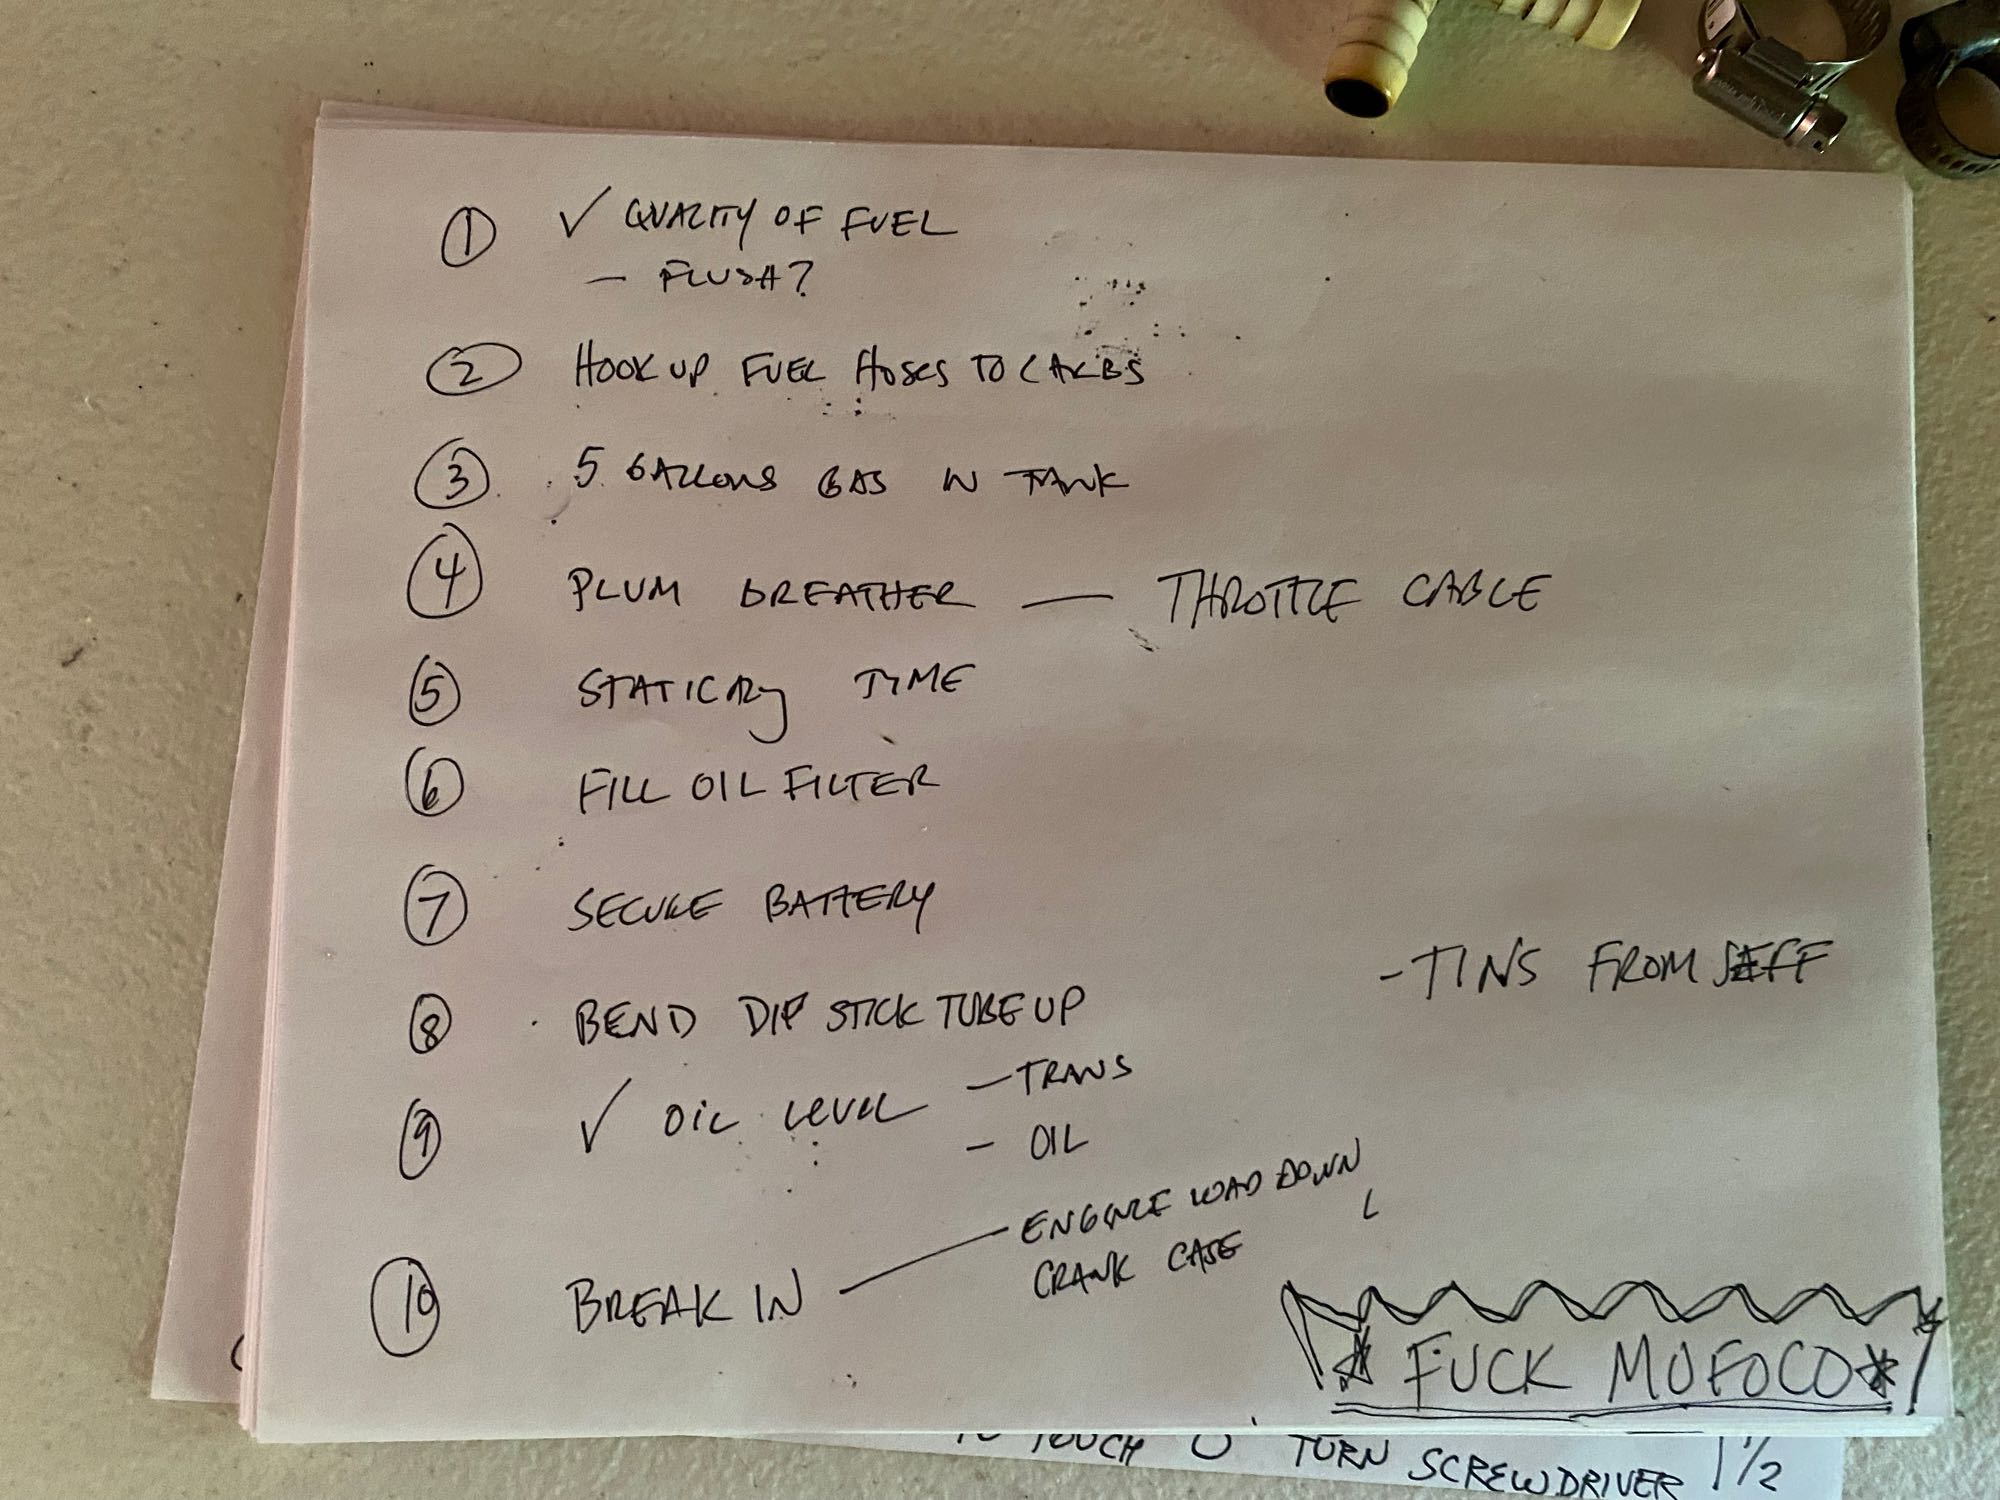 ① ✓ QUALITY OF FUEL
— FLUSH?
② HOOK UP FUEL HOSES TO CARBS
③ 5 GALLONS GAS IN TANK
④ PLUM BREATHER — THROTTLE CABLE
⑤ STATICALLY TIME
⑥ FILL OIL FILTER
⑦ SECURE BATTERY
- TINS FROM JEFF
⑧ BEND DIP STICK TUBE UP
⑨ ✓ OIL LEVEL — TRANS
— OIL
⑩ BREAK IN — ENGINE LOAD DOWN
CRANK CASE
* FUCK MOFOCO *
TO TOUCH TURN SCREWDRIVER 1 1/2